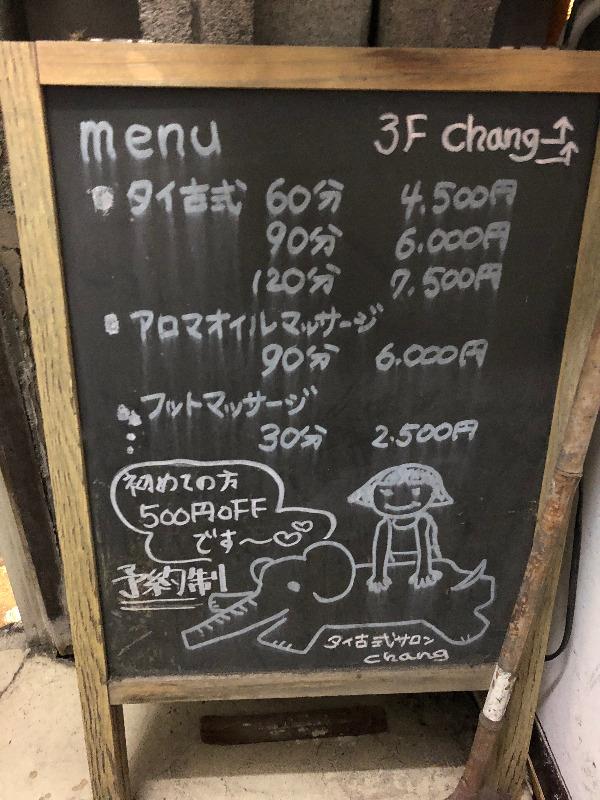 menu
3F chang
タイ古式 60分 4.500円
90分 6.000円
120分 7.500円
アロマオイルマッサージ
90分 6.000円
フットマッサージ
30分 2.500円
初めての方
500円OFF
です〜♡♡
予約制
タイ古式サロン
chang